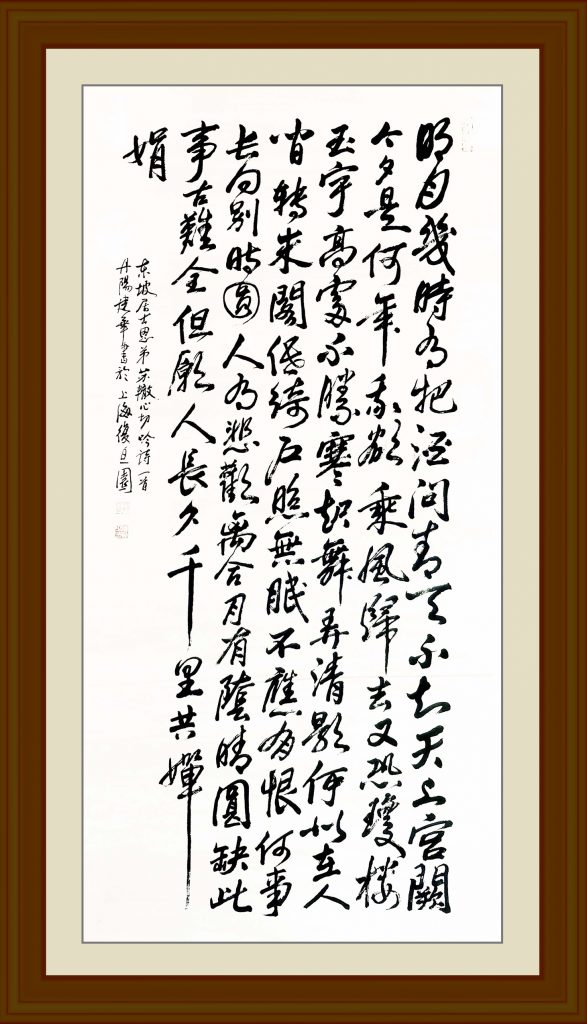 明月幾時有把酒問青天不知天上宮闕
今夕是何年我欲乘風歸去又恐瓊樓
玉宇高處不勝寒起舞弄清影何似在人
間轉朱閣低綺戶照無眠不應有恨何事
長向別時圓人有悲歡離合月有陰晴圓缺此
事古難全但願人長久千里共嬋
娟
东坡居士思弟苏轍心切吟诗一首
丹陽捷華書於上海復旦園